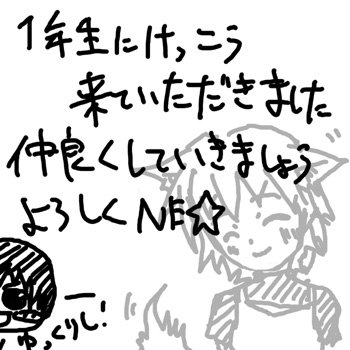 1年生にけっこう
来ていただきました
仲良くしていきましょう
よろしくNE☆
ゆっくりし!